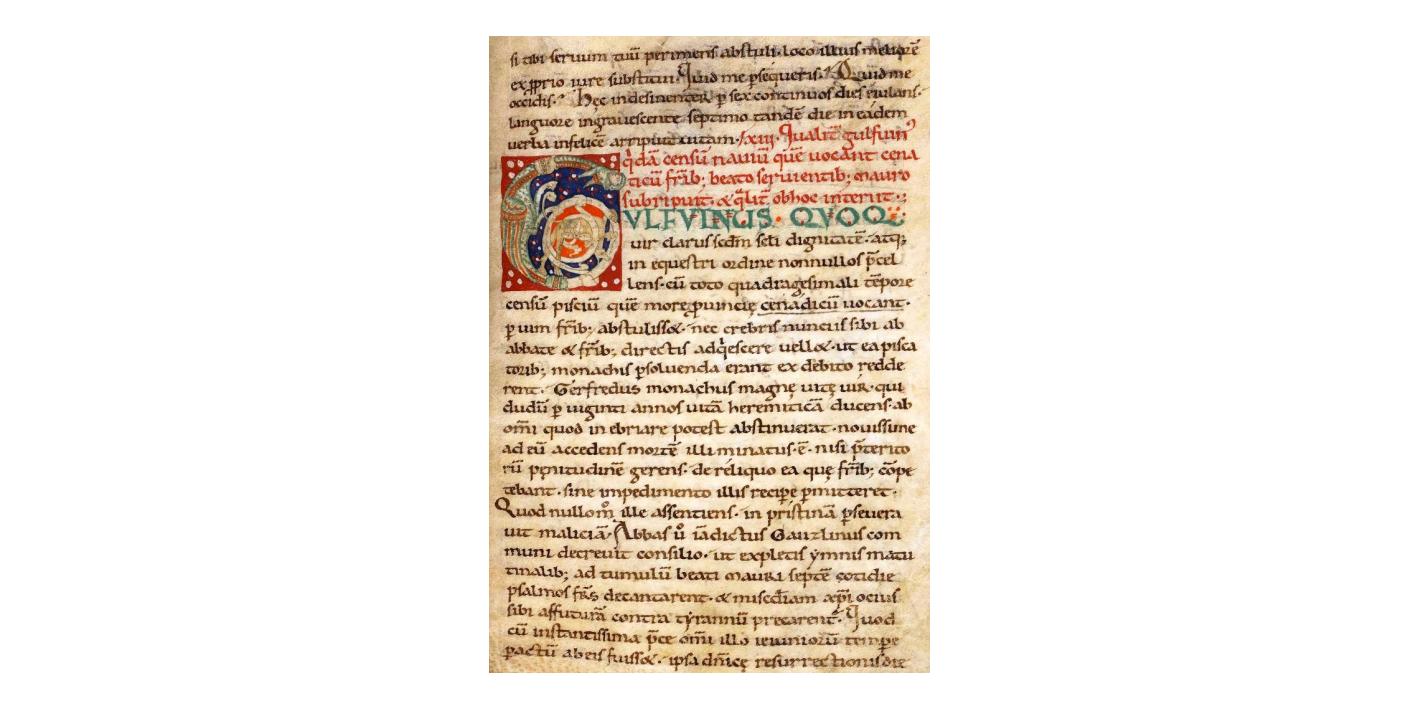 si tibi seruum tuū perimens abstuli. loco illius meliorē
ex ꝓprio iure substitui. Quid me ꝑsequeris? Quid me
occidis? Hęc indesinenter ꝑ sex continuos dies eiulans.
languore ingrauescente septimo tandē die in eadem
uerba infelicē arripuit uitam. xiii. Qualit̄ gulfuinꝰ
q̇dā censū nauiū quē uocant cena
ticū fr̄ib; beato seruientib; mauro
subripuit. & q̇lit̄ ob hoc interiit.
GVLFVINUS QVOQ
uir clarus scdm̄ scli dignitatē. atq;
in equestri ordine nonnullos p̄cel
lens. cū toto quadragesimali tēpore
censū pisciū quē more ꝓuincię cenadicū uocant.
ꝑ uim fr̄ib; abstulisset. nec crebris nunciis sibi ab
abbate & fr̄ib; directis adq̇escere uellet. ut ea pisca
torib; monachis ꝑsoluenda erant ex debito redde
rent. Gerfredus monachus magnę uitę uir. qui
dudū ꝑ uiginti annos uitā heremiticā ducens. ab
om̄i quod inebriare potest abstinuerat. nouissime
ad eū accedens mortē illi minatus. ē. nisi p̄terito
rū pęnitudinē gerens. de reliquo ea quę fr̄ib; cōpe
tebant. sine impedimento illis recipe ꝑmitteret.
Quod nullom̊ ille assentiens. in pristinā ꝑseuera
uit maliciā. Abbas ů iā dictus Gauzlinus com
muni decreuit consilio. ut expletis ymnis matu
tinalib; ad tumulū beati mauri septē cotidie
psalmos fr̄s decantarent. & miscd̄iam xp̄i ocius
sibi affuturā contra tyrannū precarent. Quod
cū instantissima p̄ce om̄i illo ieiuniorū tempe
ꝑactū ab eis fuisset. ipsa dn̄icę resurrectionis die